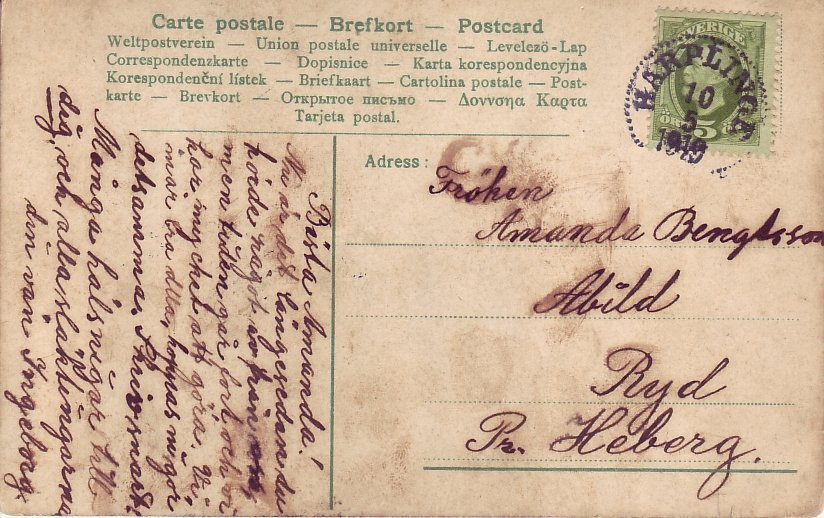 Carte postale — Brefkort — Postcard
Weltpostverein — Union postale universelle — Levelező-Lap
Correspondenzkarte — Dopisnice — Karta korespondencyjna
Korespondenční lístek — Briefkaart — Cartolina postale — Post-
karte — Brevkort — Открытое письмо — Δοννσηα Καρτα
Tarjeta postal.
SVERIGE
5
HARPLINGE
10
5
Adress:
Fröken
Amanda Bengtsson
Abild
Ryd
Pr. Heberg.
Bästa Amanda!
Nu är det längesedan du
hörde något ifrån
men tiden går fort och vi
har mycket att göra. Vi
mår bra alla, hoppas ni gör
detsamma. Skriv snart.
Många hälsningar till
dig och alla släktingarna
din vän Ingeborg.